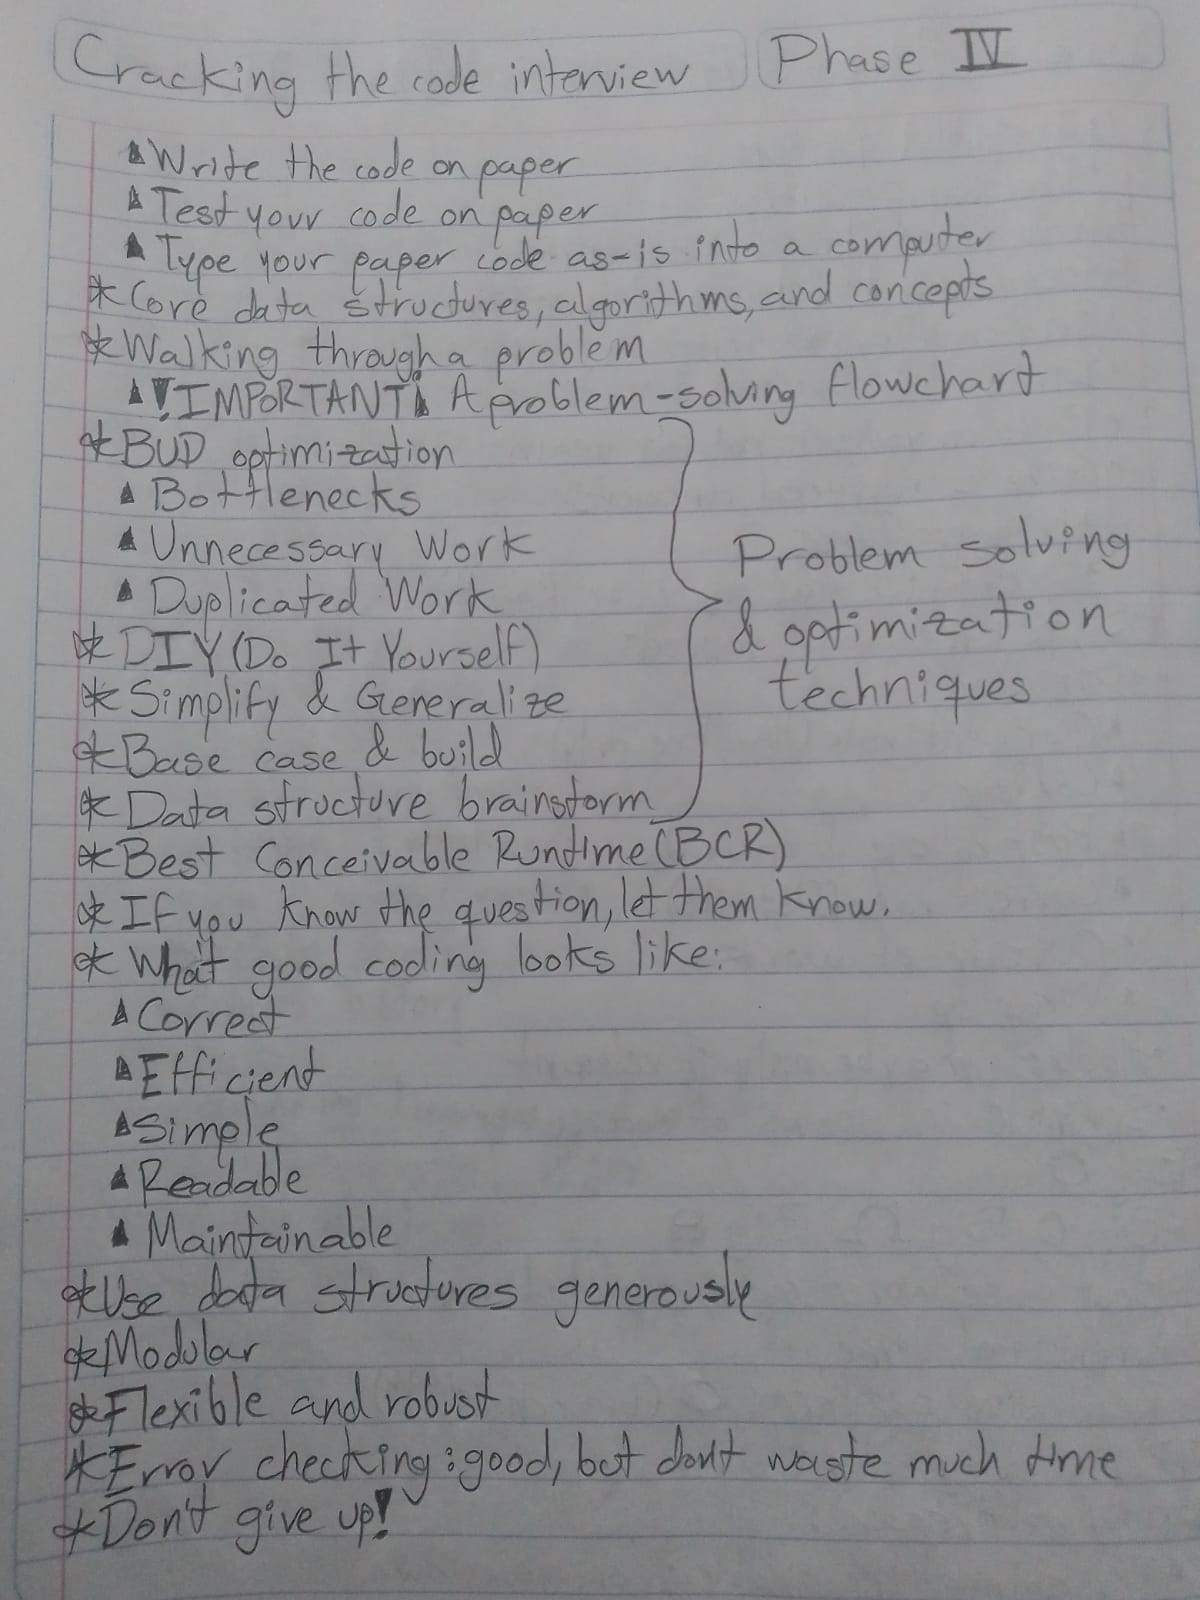 Cracking the code interview Phase IV
▲ Write the code on paper
▲ Test your code on paper
▲ Type your paper code as-is into a computer
* Core data structures, algorithms, and concepts
* Walking through a problem
▲ !IMPORTANT¡ A problem-solving flowchart
* BUD optimization
▲ Bottlenecks
▲ Unnecessary Work
▲ Duplicated Work
* DIY (Do It Yourself)
* Simplify & Generalize
* Base case & build
* Data structure brainstorm
Problem solving
& optimization
techniques
* Best Conceivable Runtime (BCR)
* If you know the question, let them know.
* What good coding looks like:
▲ Correct
▲ Efficient
▲ Simple
▲ Readable
▲ Maintainable
* Use data structures generously
* Modular
* Flexible and robust
* Error checking: good, but don't waste much time
* Don't give up!